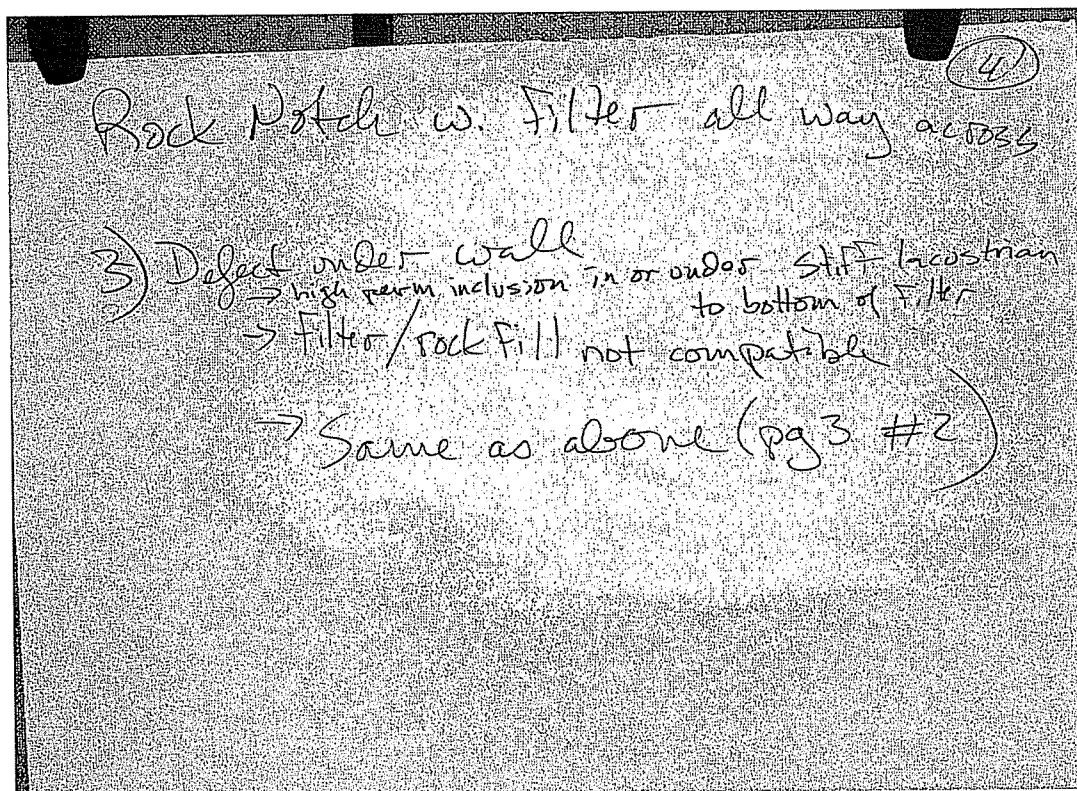 4
Rock Notch w. Filter all way across
3) Defect under wall
→ high perm inclusion in or under stiff lacustrian
to bottom of filter
→ Filter/rockfill not compatible
→ Same as above (pg 3 #2)